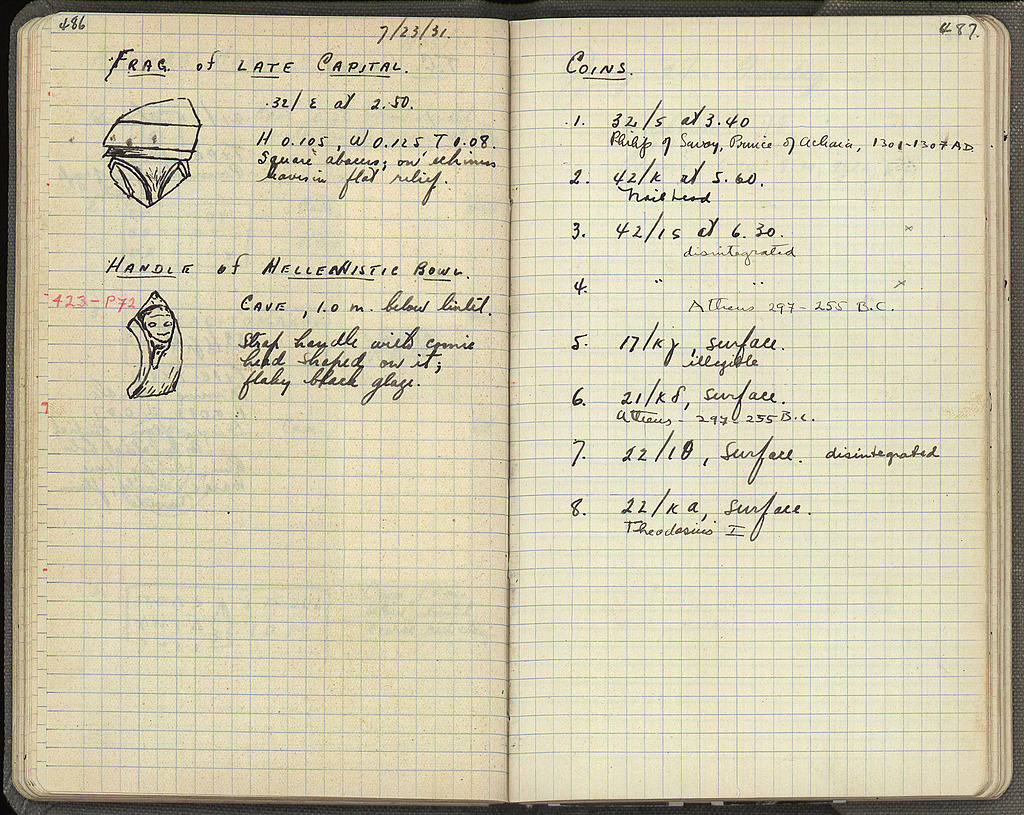 486
7/23/31.
FRAG. of LATE CAPITAL.
32/Ε at 2.50.
H 0.105, W 0.125 T 0.08.
Square abacus; on echinus
leaves in flat relief.
HANDLE of HELLENISTIC BOWL.
423-P72
CAVE, 1.0 m. below lintel.
Strap handle with comic
head shaped on it;
flaky black glaze.
487.
COINS.
1. 32/5 at 3.40
Philip of Savoy, Prince of Achaia, 1301-1307 AD
2. 42/Κ at 5.60.
Nail head
3. 42/15 at 6.30. ×
disintegrated
4. " " ×
Athens 297-255 B.C.
5. 17/Κγ, surface.
illegible
6. 21/Κδ, surface.
Athens - 297-255 B.C.
7. 22/ΙΘ, surface. disintegrated
8. 22/Κα, surface.
Theodosius I